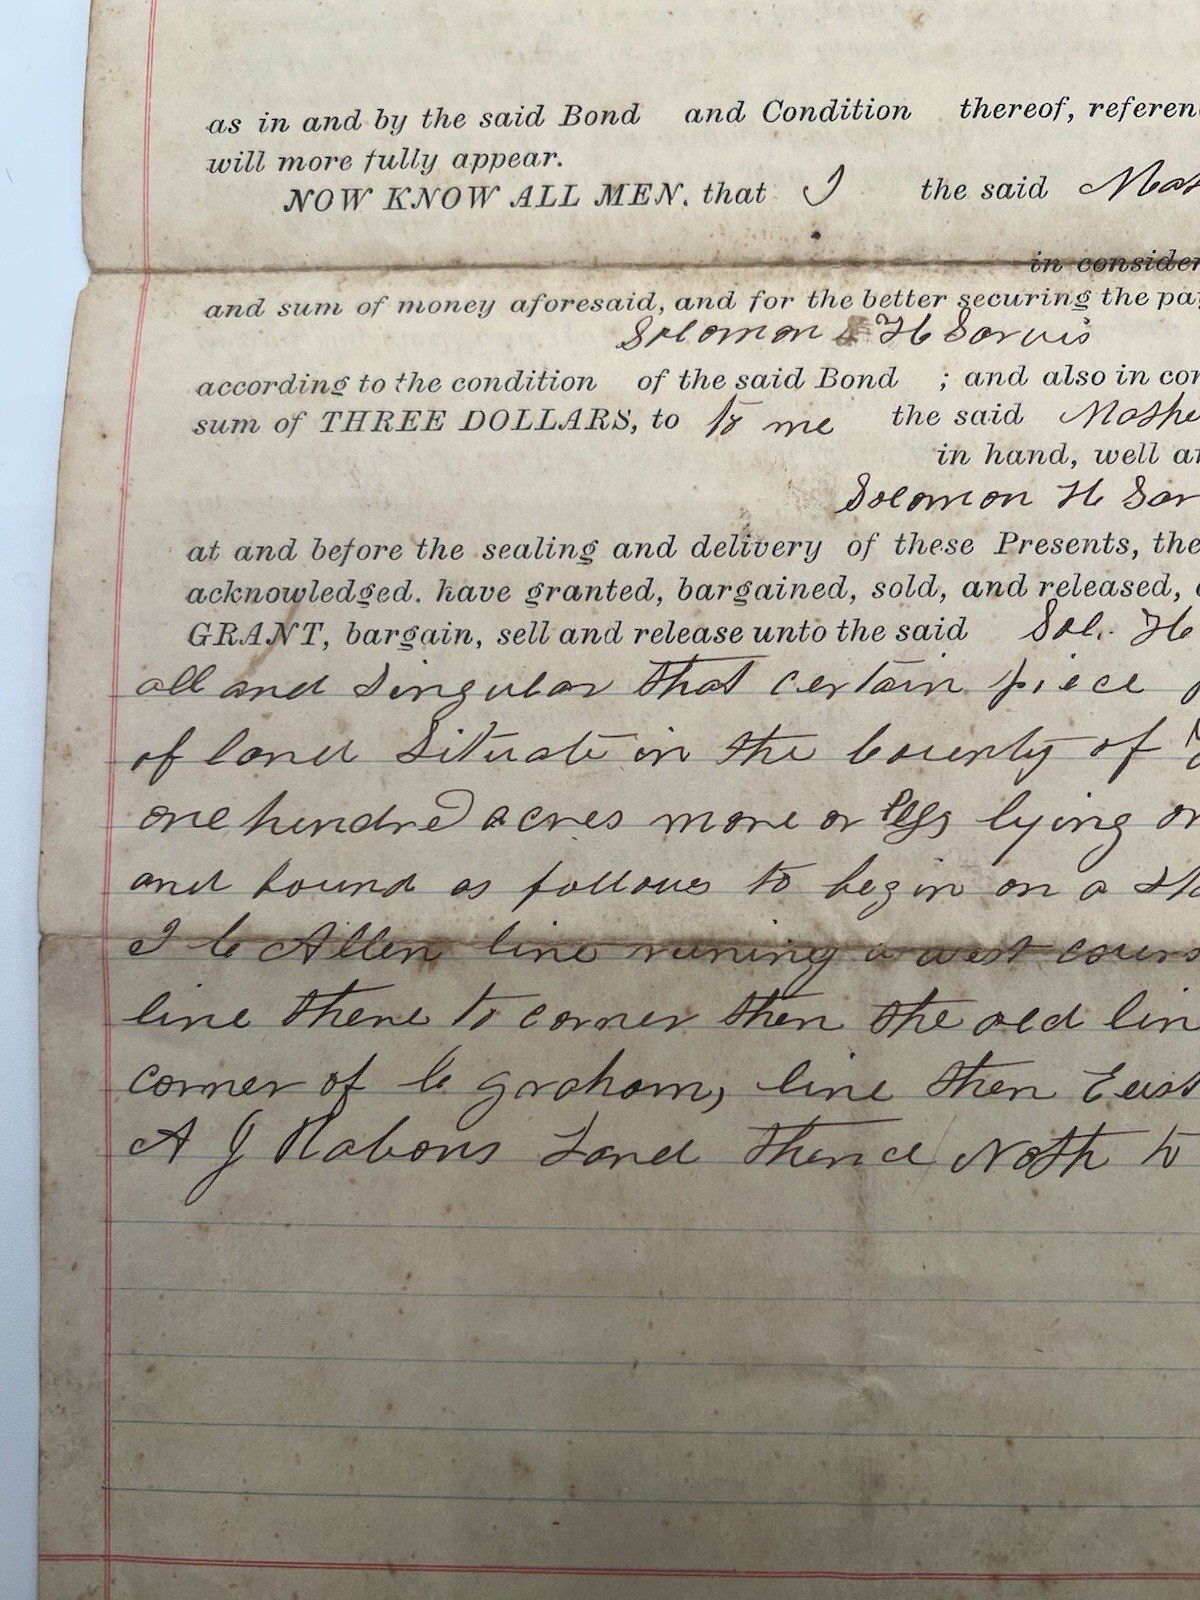 as in and by the said Bond and Condition thereof, referen
will more fully appear.
NOW KNOW ALL MEN, that I the said
in consider
and sum of money aforesaid, and for the better securing the pay
Solomon H Sarvis
according to the condition of the said Bond ; and also in con
sum of THREE DOLLARS, to to me the said Mathe
in hand, well an
Solomon H Sar
at and before the sealing and delivery of these Presents, the
acknowledged. have granted, bargained, sold, and released,
GRANT, bargain, sell and release unto the said Sol. H
all and singular that certain piece
of land Situate in the County of
one hundred acres more or less lying on
and bound as follows to begin on a sta
J C Allen line runing a west cours
line there to corner then the old lin
corner of C graham, line then East
A J Rabons Land thence Noth to